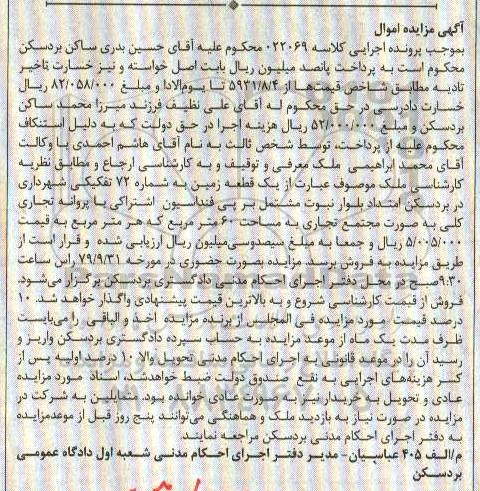 آگهی مزایده اموال
بموجب پرونده اجرایی کلاسه ۰۲۲۰۶۹ محکوم علیه آقای حسین بدری ساکن بردسکن
محکوم است به پرداخت پانصد میلیون ریال بابت اصل خواسته و نیز خسارت تاخیر
تادیه مطابق شاخص قیمت‌ها از ۵۹۳۱/۸/۴ تا یوم‌الادا و مبلغ ۸۲/۰۵۸/۰۰۰ ریال
خسارت دادرسی در حق محکوم له آقای علی نظیف فرزند میرزا محمد ساکن
بردسکن و مبلغ ۵۲/۰۰۰/۰۰۰ ریال هزینه اجرا در حق دولت که به دلیل استنکاف
محکوم علیه از پرداخت، توسط شخص ثالث به نام آقای هاشم احمدی با وکالت
آقای محمد ابراهیمی ملک معرفی و توقیف و به کارشناسی ارجاع و مطابق نظریه
کارشناسی ملک موصوف عبارت از یک قطعه زمین به شماره ۷۲ تفکیکی شهرداری
در بردسکن امتداد بلوار نبوت مشتمل بر پی فنداسیون اشتراکی با پروانه تجاری
کلی به صورت مجتمع تجاری به مساحت ۶۰ متر مربع که هر متر مربع به قیمت
۵/۰۰۵/۰۰۰ ریال و جمعا به مبلغ سیصدوسی‌میلیون ریال ارزیابی شده و قرار است از
طریق مزایده به فروش برسد. مزایده بصورت حضوری در مورخه ۷۹/۹/۳۱ راس ساعت
۹:۳۰ صبح در محل دفتر اجرای احکام مدنی دادگستری بردسکن برگزار می‌شود.
فروش از قیمت کارشناسی شروع و به بالاترین قیمت پیشنهادی واگذار خواهد شد. ۱۰
درصد قیمت/ مورد مزایده فی المجلس از برنده مزایده اخذ و الباقی را می‌بایست
ظرف مدت یک ماه از موعد مزایده به حساب سپرده دادگستری بردسکن واریز و
رسید آن را در موعد قانونی به اجرای احکام مدنی تحویل والا ۱۰ درصد اولیه پس از
کسر هزینه‌های اجرایی به نفع صندوق دولت ضبط خواهدشد. اسناد مورد مزایده
عادی و تحویل به خریدار نیز به صورت عادی خوانده بود. متمایلین به شرکت در
مزایده در صورت نیاز به بازدید ملک و هماهنگی می‌توانند پنج روز قبل از موعدمزایده
به دفتر اجرای احکام مدنی بردسکن مراجعه نمایند.
م/الف ۴۰۵ عباسیان - مدیر دفتر اجرای احکام مدنی شعبه اول دادگاه عمومی
بردسکن